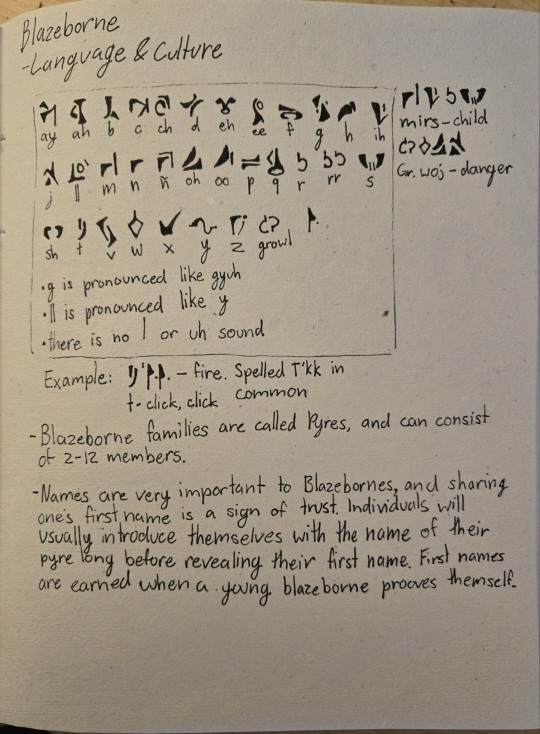 Blazeborne
-Language & Culture
ay ah b c ch d eh ee f g h ih
j ll m n ñ oh oo p q r rr s
sh t v w x y z growl
mirs-child
Gr. woj-danger
•g is pronounced like gyuh
•ll is pronounced like y
•there is no l or uh sound
Example: – fire. Spelled T'kk in
t-click, click common
-Blazeborne families are called Pyres, and can consist
of 2-12 members.
-Names are very important to Blazebornes, and sharing
one's first name is a sign of trust. Individuals will
usually introduce themselves with the name of their
pyre long before revealing their first name. First names
are earned when a young blazeborne prooves themself.